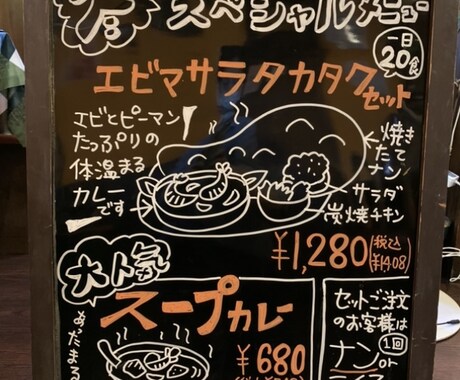 スペシャルメニュー
一日
20食
エビマサラタカタクセット
エビとピーマン
たっぷりの
体温まる
カレーです
焼き
たて
ナン
サラダ
炭焼チキン
¥1,280(税込
¥1408)
大人気
スープカレー
あったまる
¥680
セットご注文
のお客様は
1回
ナンor